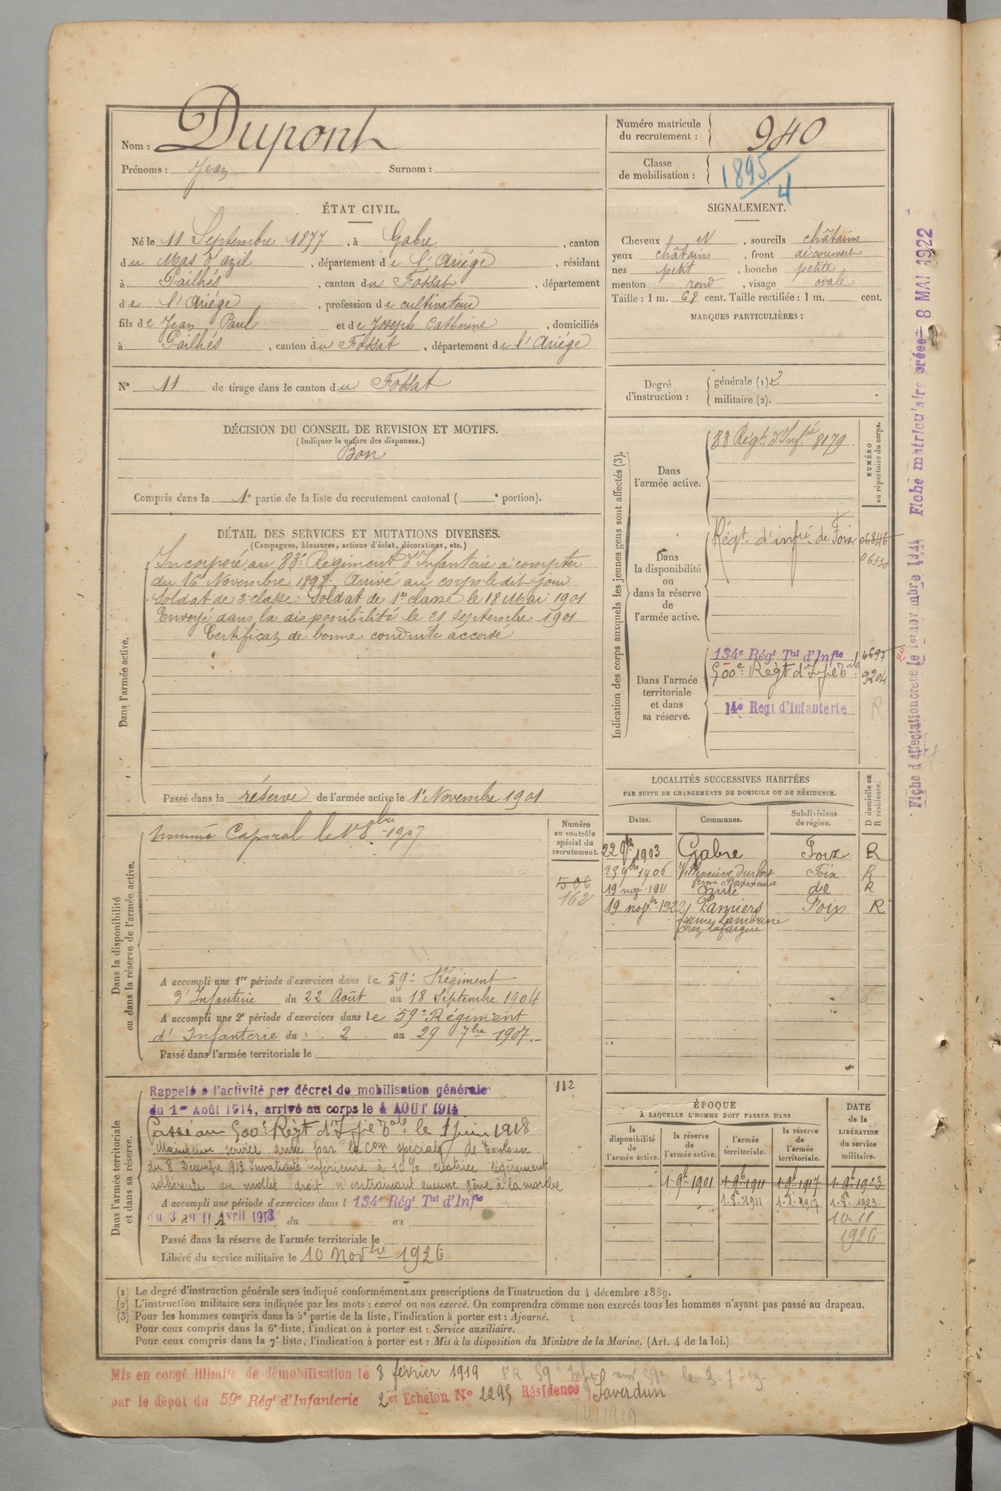 Nom : Dupont
Prénoms : Jean Surnom :
ÉTAT CIVIL.
Né le 11 Septembre 1877, à Gabre, canton
du Mas d'azil, département de l'Ariége, résidant
à Pailhés, canton du Fossat, département
de l'Ariége, profession de cultivateur
fils de Jean Paul et de Joseph Catherine, domiciliés
à Pailhés, canton du Fossat, département de l'Ariége
N° 11 de tirage dans le canton du Fossat
DÉCISION DU CONSEIL DE REVISION ET MOTIFS.
(Indiquer la nature des dispenses.)
Bon
Compris dans la 1e partie de la liste du recrutement cantonal ( e portion).
Numéro matricule du recrutement : 940
Classe de mobilisation : 1895/4
SIGNALEMENT.
Cheveux N, sourcils châtains
yeux châtains, front découvert
nez petit, bouche petite
menton rond, visage ovale
Taille : 1 m. 68 cent. Taille rectifiée : 1 m. cent.
MARQUES PARTICULIÈRES :
Degré d'instruction : générale (1) 2
militaire (2).
DÉTAIL DES SERVICES ET MUTATIONS DIVERSES.
(Campagnes, blessures, actions d'éclat, décorations, etc.)
Dans l'armée active.
Incorporé au 83e Régiment d'Infanterie à compter
du 16 Novembre 1898. Arrivé au corps ledit jour
Soldat de 2e classe. Soldat de 1re classe le 18 Mai 1901
Envoyé dans la disponibilité le 21 septembre 1901
Certificat de bonne conduite accordé
Passé dans la réserve de l'armée active le 1er Novembre 1901
Indication des corps auxquels les jeunes gens sont affectés (3).
NUMÉRO au répertoire du corps.
Dans l'armée active.
83 Régt. d'Infie 8179
Dans la disponibilité ou dans la réserve de l'armée active.
Régt. d'infie de Foix
Dans l'armée territoriale et dans sa réserve.
134e Régt Tal d'Infie
500e Régt d'Infie
9204
14e Regt d'Infanterie
R
Dans la disponibilité ou dans la réserve de l'armée active.
Nommé Caporal le 1er 8bre 1907
Numéro en contrôle spécial du recrutement.
506
162
A accompli une 1re période d'exercices dans le 59e Régiment
d'Infanterie du 22 Août au 18 Septembre 1904
A accompli une 2e période d'exercices dans le 59e Régiment
d'Infanterie du 2 au 29 7bre 1907
Passé dans l'armée territoriale le
LOCALITÉS SUCCESSIVES HABITÉES
PAR SUITE DE CHANGEMENTS DE DOMICILE OU DE RÉSIDENCE.
Dates. Communes. Subdivisions de région. D domicile ou R résidence.
22 9bre 1903 Gabre Foix R
23 9bre 1906 Villeneuve Durfort Foix R
19 nov 1911 do R
19 novbre 1922 Pamiers Foix R
Dans l'armée territoriale et dans sa réserve.
Rappelé à l'activité par décret de mobilisation générale
du 1er Août 1914, arrivé au corps le 4 AOUT 1914
112
Passé au 500e Régt d'Infie le 1 juin 1918
Maintenu service armé par la Con spéciale de Toulouse
du 8 Décembre 1918 Invalidité inférieure à 10% cicatrice légèrement
adhérente au mollet droit n'entrainant aucune gêne à la marche
A accompli une période d'exercices dans l 134e Régt Tal d'Infie
du 3 au 11 Avril 1913 du au
Passé dans la réserve de l'armée territoriale le
Libéré du service militaire le 10 Novbre 1926
ÉPOQUE
À LAQUELLE L'HOMME DOIT PASSER DANS
la disponibilité de l'armée active. la réserve de l'armée active. l'armée territoriale. la réserve de l'armée territoriale. DATE de la LIBÉRATION du service militaire.
1-9bre 1901 1-9bre 1911 1-9bre 1917 1-9bre 1923
10-11
1926
(1) Le degré d'instruction générale sera indiqué conformément aux prescriptions de l'instruction du 4 décembre 1889.
(2) L'instruction militaire sera indiquée par les mots : exercé ou non exercé. On comprendra comme non exercés tous les hommes n'ayant pas passé au drapeau.
(3) Pour les hommes compris dans la 5e partie de la liste, l'indication à porter est : Ajourné.
Pour ceux compris dans la 6e liste, l'indication à porter est : Service auxiliaire.
Pour ceux compris dans la 7e liste, l'indication à porter est : Mis à la disposition du Ministre de la Marine. (Art. 4 de la loi.)
Mis en congé illimité de démobilisation le 3 février 1919
par le dépôt du 59e Régt d'Infanterie 2e Echelon N° 2295 Résidence Saverdun
Fiche matriculaire créée 8 MAI 1922